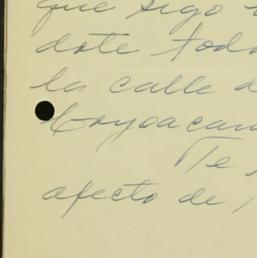 que sigo
dote todo
la calle d
Coyoacan
Te
afecto de